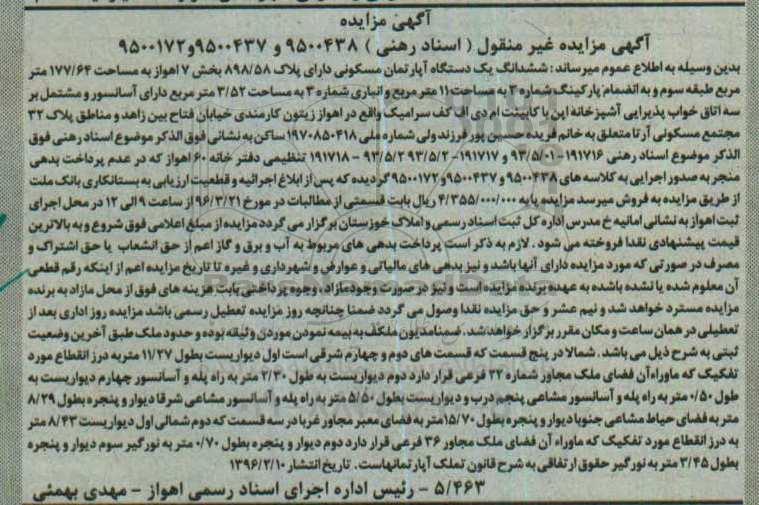 آگهی مزایده
آگهی مزایده غیر منقول ( اسناد رهنی ) ۹۵۰۰۴۳۸ و ۹۵۰۰۴۳۷و۹۵۰۰۱۷۲
بدین وسیله به اطلاع عموم میرساند : ششدانگ یک دستگاه آپارتمان مسکونی دارای پلاک ۸۹۸/۵۸ بخش ۷ اهواز به مساحت ۱۷۷/۶۴ متر
مربع طبقه سوم و به انضمام پارکینگ شماره ۳ به مساحت ۱۱ متر مربع و انباری شماره ۳ به مساحت ۳/۵۲ متر مربع دارای آسانسور و مشتمل بر
سه اتاق خواب پذیرایی آشپزخانه اپن با کابینت ام دی اف کف سرامیک واقع در اهواز زیتون کارمندی خیابان فتاح بین زاهد و مناطق پلاک ۳۲
مجتمع مسکونی آرتا متعلق به خانم فریده حسین پور فرزند ولی شماره ملی ۱۹۷۰۸۵۰۴۱۸ ساکن به نشانی فوق الذکر موضوع اسناد رهنی فوق
الذکر موضوع اسناد رهنی ۱۹۱۷۱۶-۹۳/۵/۰۱ و ۱۹۱۷۱۷- ۹۳/۵/۲ و ۹۳/۵/۲ - ۱۹۱۷۱۸ تنظیمی دفتر خانه ۶۰ اهواز که در عدم پرداخت بدهی
منجر به صدور اجرایی به کلاسه های ۹۵۰۰۴۳۸ و ۹۵۰۰۴۳۷و ۹۵۰۰۱۷۲ گردیده که پس از ابلاغ اجرائیه و قطعیت ارزیابی به بستانکاری بانک ملت
از طریق مزایده به فروش میرسد مزایده پایه ۴/۳۵۵/۰۰۰/۰۰۰ ریال بابت قسمتی از مطالبات در مورخ ۹۶/۳/۲۱ از ساعت ۹ الی ۱۲ در محل اجرای
ثبت اهواز به نشانی امانیه خ مدرس اداره کل ثبت اسناد رسمی و املاک خوزستان برگزار می گردد مزایده از مبلغ اعلامی فوق شروع و به بالاترین
قیمت پیشنهادی نقدا فروخته می شود . لازم به ذکر است پرداخت بدهی های مربوط به آب و برق و گاز اعم از حق انشعاب یا حق اشتراک و
مصرف در صورتی که مورد مزایده دارای آنها باشد و نیز بدهی های مالیاتی و عوارض و شهرداری و غیره تا تاریخ مزایده اعم از اینکه رقم قطعی
آن معلوم شده یا نشده باشد به عهده برنده مزایده است و نیز در صورت وجود مازاد ، وجوه پرداختی بابت هزینه های فوق از محل مازاد به برنده
مزایده مسترد خواهد شد و نیم عشر و حق مزایده نقدا وصول می گردد ضمنا چنانچه روز مزایده تعطیل رسمی باشد مزایده روز اداری بعد از
تعطیلی در همان ساعت و مکان مقرر برگزار خواهد شد . ضمنا مدیون مکلف به بیمه نمودن موردن وثیقه بوده و حدود ملک طبق آخرین وضعیت
ثبتی به شرح ذیل می باشد . شمالا در پنج قسمت که قسمت های دوم و چهارم شرقی است اول دیواریست بطول ۱۱/۲۷ متر به درز انقطاع مورد
تفکیک که ماوراء آن فضای ملک مجاور شماره ۳۲ فرعی قرار دارد دوم دیواریست به طول ۲/۳۰ متر به راه پله و آسانسور چهارم دیواریست به
طول ۰/۵۰ متر به راه پله و آسانسور مشاعی پنجم درب و دیواریست بطول ۵/۵۰ متر به راه پله و آسانسور مشاعی شرقا دیوار و پنجره بطول ۸/۲۹
متر به فضای حیاط مشاعی جنوبا دیوار و پنجره بطول ۱۵/۷۰ متر به فضای معبر مجاور غربا در سه قسمت که دوم شمالی اول دیواریست ۸/۴۳ متر
به درز انقطاع مورد تفکیک که ماوراء آن فضای ملک مجاور ۳۶ فرعی قرار دارد دوم دیوار و پنجره بطول ۰/۷۰ متر به نورگیر سوم دیوار و پنجره
بطول ۳/۴۵ متر به نورگیر حقوق ارتفاقی به شرح قانون تملک آپارتمانهاست . تاریخ انتشار ۱۳۹۶/۲/۱۰
۵/۴۶۳ - رئیس اداره اجرای اسناد رسمی اهواز - مهدی بهمئی